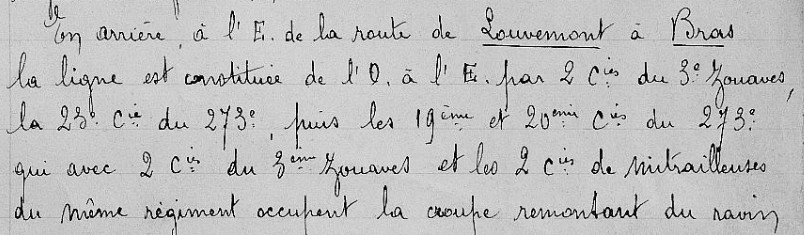 En arrière, à l'E. de la route de Louvemont à Bras
la ligne est constituée de l'O. à l'E. par 2 Cies du 3e Zouaves,
la 23e Cie du 273e, puis les 19ème et 20ème Cies du 273e
qui avec 2 Cies du 3ème Zouaves et les 2 Cies de mitrailleuses
du même régiment occupent la croupe remontant du ravin